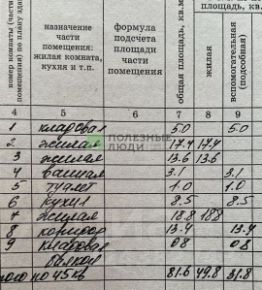 номер комнаты (части помещения) по плану здания
назначение части помещения: жилая комната, кухня и т.п.
формула подсчета площади части помещения
общая площадь, кв.м
площадь, кв.
жилая
вспомогательная (подсобная)
4 5 6 7 8 9
1 кладовая 5.0 5.0
2 жилая 17.4 17.4
3 жилая 13.6 13.6
4 ванная 3.1 3.1
5 туалет 1.0 1.0
6 кухня 8.5 8.5
7 жилая 18.8 18.8
8 коридор 13.4 13.4
9 кладовая 0.8 0.8
балкон
того по 45 кв 81.6 49.8 31.8
ПОЛЕЗНЫЕ
ЛЮДИ